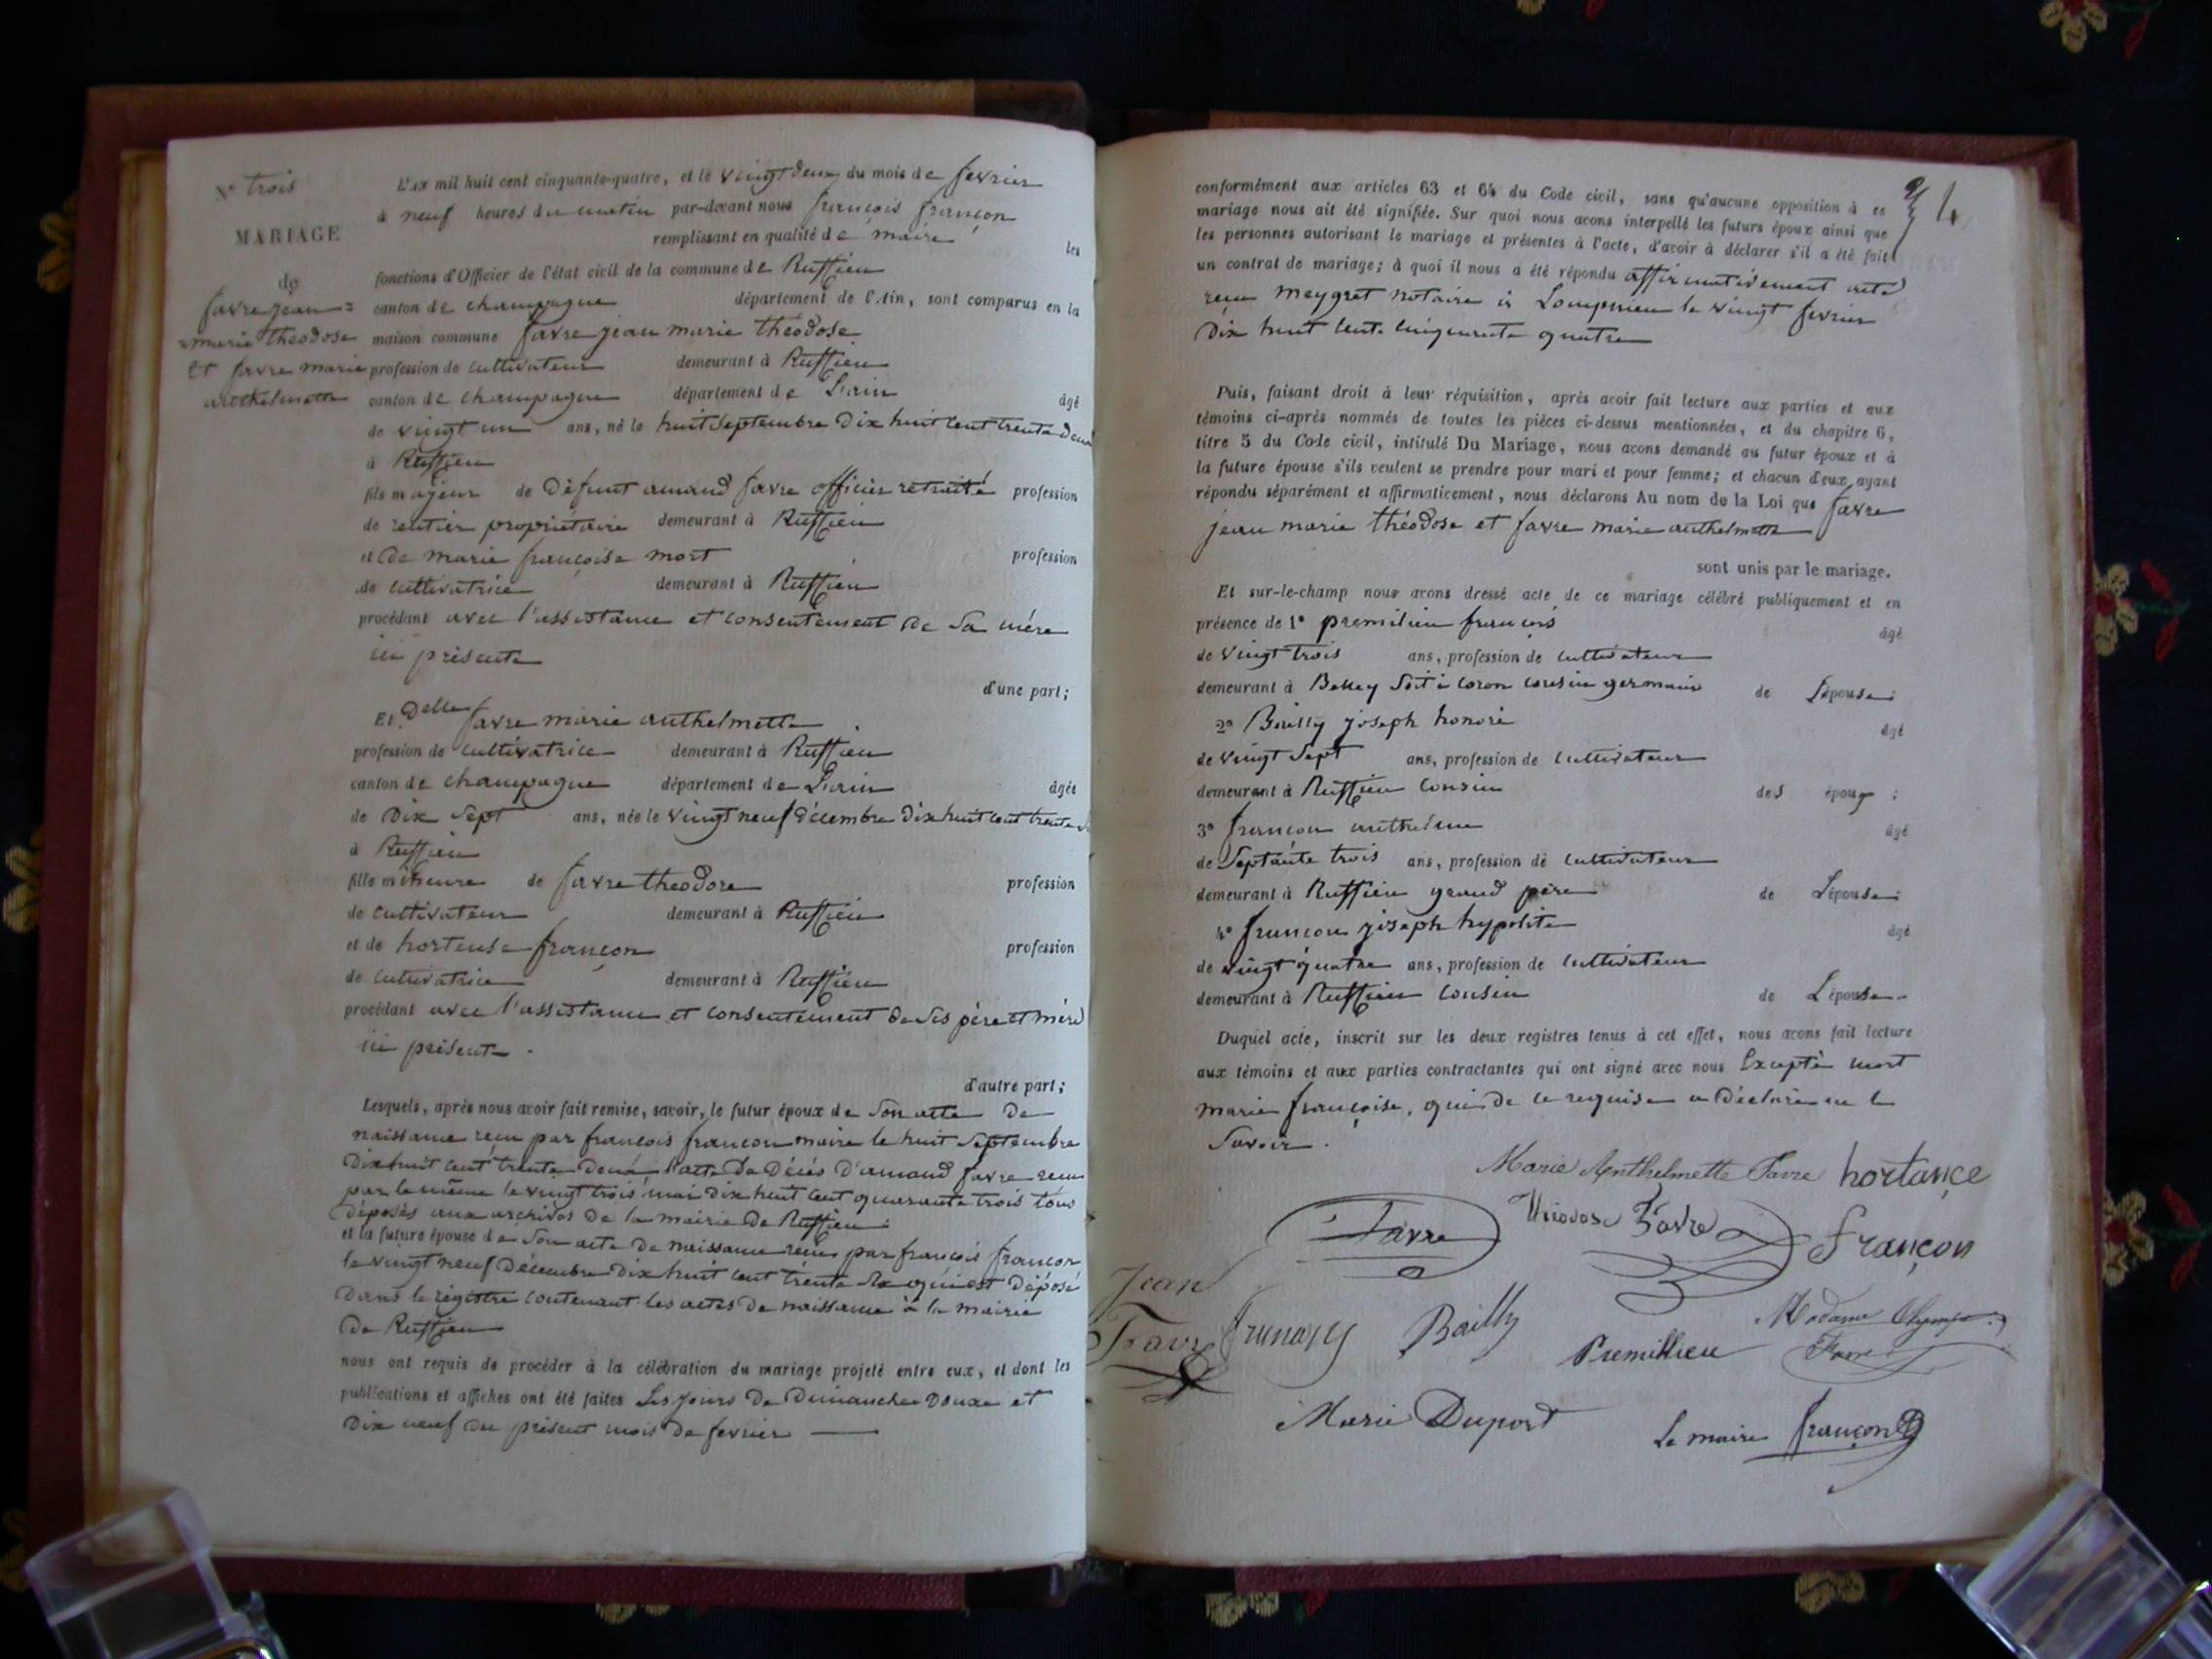 N° trois
L'an mil huit cent cinquante-quatre, et le vingt deux du mois de fevrier
à neuf heures du matin par-devant nous françois françon
MARIAGE
remplissant en qualité de maire les
de
fonctions d'Officier de l'état civil de la commune de Ruffieu
favre jean=
canton de champagne département de l'Ain, sont comparus en la
=marie théodose
maison commune favre jean marie théodose
et favre marie
profession de cultivateur demeurant à Ruffieu
anthelmette
canton de champagne département de L'ain âgé
de vingt un ans, né le huit Septembre Dix huit cent trente deux
à Ruffieu
fils majeur de Défunt amand favre officier retraité profession
de rentier propriétaire demeurant à Ruffieu
et de marie françoise mort profession
de cultivatrice demeurant à Ruffieu
procédant avec l'assistance et consentement de Sa mére
ici présente
d'une part;
Et Delle favre marie anthelmette
profession de cultivatrice demeurant à Ruffieu
canton de champagne département de L'ain âgée
de Dix Sept ans, née le vingt neuf décembre Dix huit cent trente
à Ruffieu
fille mineure de favre theodore profession
de cultivateur demeurant à Ruffieu
et de hortense françon profession
de cultivatrice demeurant à Ruffieu
procédant avec l'assistance et consentement de Ses père et mère
ici présent .
d'autre part;
Lesquels, après nous avoir fait remise, savoir, le futur époux de Son acte De
naissance reçu par françois françon maire le huit Septembre
Dix huit cent trente deux l'acte De Décès D'amand favre reçu
par le même le vingt trois mai Dix huit cent quarante trois tous
Déposés aux archives De la mairie De Ruffieu ;
et la future épouse de Son acte De naissance reçu par françois françon
le vingt neuf Décembre Dix huit cent trente Six qui est Déposé
Dans le régistre contenant les actes De naissance à la mairie
De Ruffieu
nous ont requis de procéder à la célébration du mariage projeté entre eux, et dont les
publications et affiches ont été faites Les jours De Dimanche Douze et
Dix neuf du présent mois De fevrier
4
conformément aux articles 63 et 64 du Code civil, sans qu'aucune opposition à ce
mariage nous ait été signifiée. Sur quoi nous avons interpellé les futurs époux ainsi que
les personnes autorisant le mariage et présentes à l'acte, d'avoir à déclarer s'il a été fait
un contrat de mariage; à quoi il nous a été répondu affirmativement acte
reçu Meygret notaire à Lompnieu le vingt fevrier
Dix huit cent cinquante quatre
Puis, faisant droit à leur réquisition, après avoir fait lecture aux parties et aux
témoins ci-après nommés de toutes les pièces ci-dessus mentionnées, et du chapitre 6,
titre 5 du Code civil, intitulé Du Mariage, nous avons demandé au futur époux et à
la future épouse s'ils veulent se prendre pour mari et pour femme; et chacun d'eux ayant
répondu séparément et affirmativement, nous déclarons Au nom de la Loi que favre
jean marie théodose et favre marie anthelmette
sont unis par le mariage.
Et sur-le-champ nous avons dressé acte de ce mariage célébré publiquement et en
présence de 1° premilieu françois âgé
de vingt trois ans, profession de cultivateur
demeurant à Belley Soit à coron cousin germain de L'épouse;
2° Bailly joseph honoré âgé
de vingt Sept ans, profession de cultivateur
demeurant à Ruffieu cousin des époux ;
3° françon anthelme âgé
de Septante trois ans, profession de cultivateur
demeurant à Ruffieu grand père de L'épouse;
4° françon joseph hypolite âgé
de vingt quatre ans, profession de cultivateur
demeurant à Ruffieu cousin de L'épouse
Duquel acte, inscrit sur les deux registres tenus à cet effet, nous avons fait lecture
aux témoins et aux parties contractantes qui ont signé avec nous Excepté mort
marie françoise, qui de ce requise a Déclaré ne le
Savoir .
Marie Anthelmette Favre hortançe
Favre Théodose Favre françon
Jean
Favre Bailly Premillieu Madame Olympe
Favre
Marie Duport Le maire françon